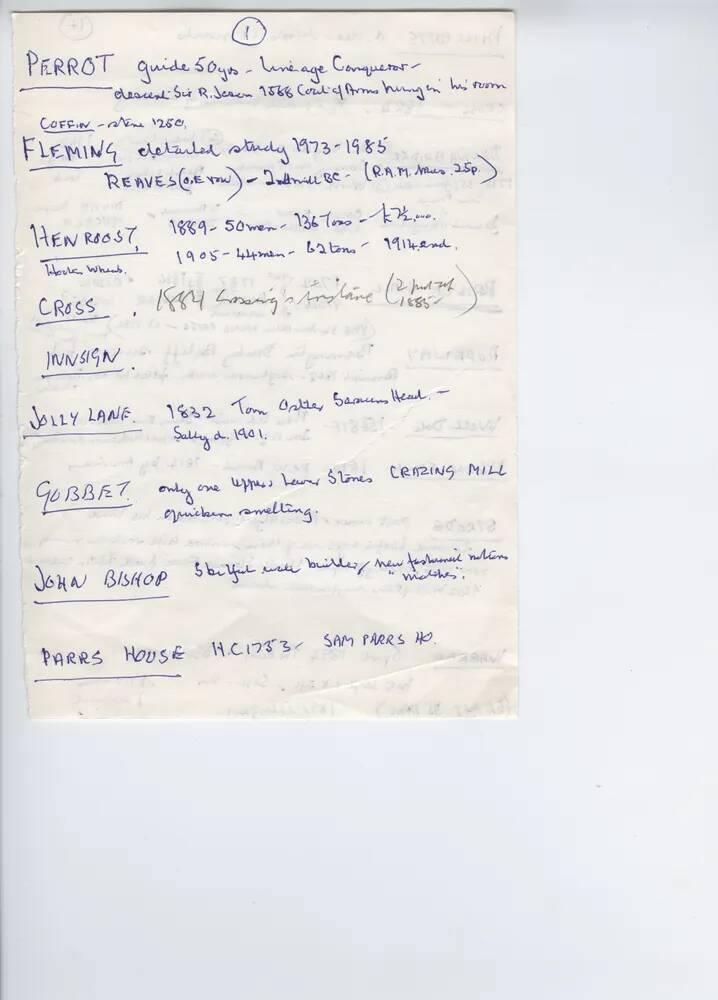 1
PERROT guide 50yrs - Lineage Conqueror -
descend. Sir R. 1568 Coat of Arms hung in his room
COFFIN - stone 1250.
FLEMING detailed study 1973-1985
REAVES (O.E row) - 2nd mill BC - (R.A.M. 25p.)
HENROOST, 1889 - 50 men - 136 Tons -
Wheels. 1905 - 44 men - 62 tons - 1914 end.
CROSS. 1884 Crossing's (2 put up
1885-)
INNSIGN.
JOLLY LANE. 1832 Tom Saracens Head. -
Sally d. 1901.
GOBBET. only one Upper & Lower Stones CRAZING MILL
quickens smelting.
JOHN BISHOP Skilful wall builder, new fashioned notions
"matches".
PARRS HOUSE H.C. 1753 - SAM PARRS HO.